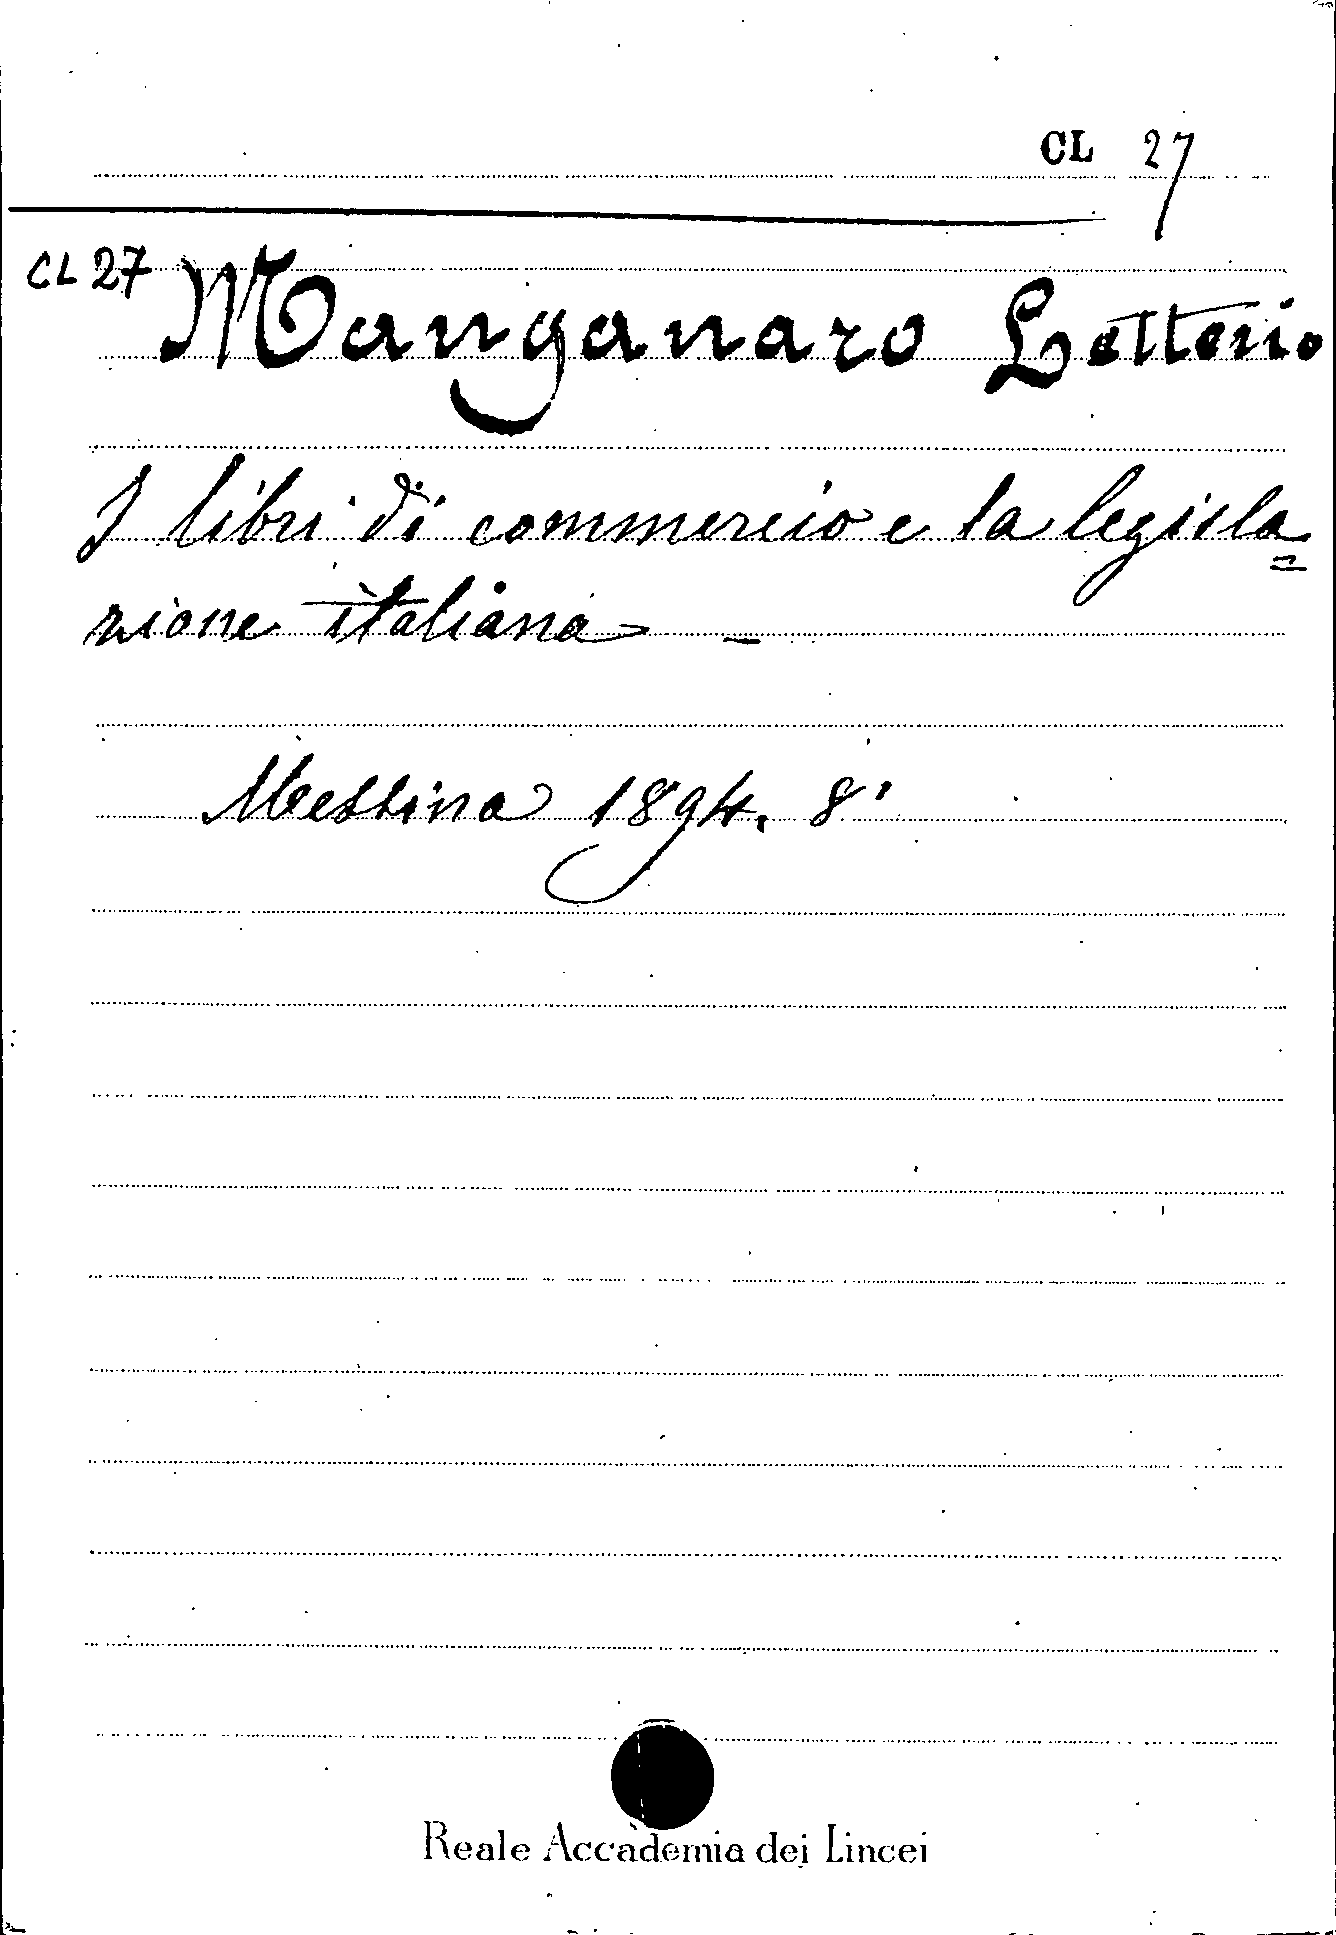 CL 27
CL 27 Manganaro Letterio
I libri di commercio e la legisla=
zione italiana –
Messina 1894. 8°
Reale Accademia dei Lincei